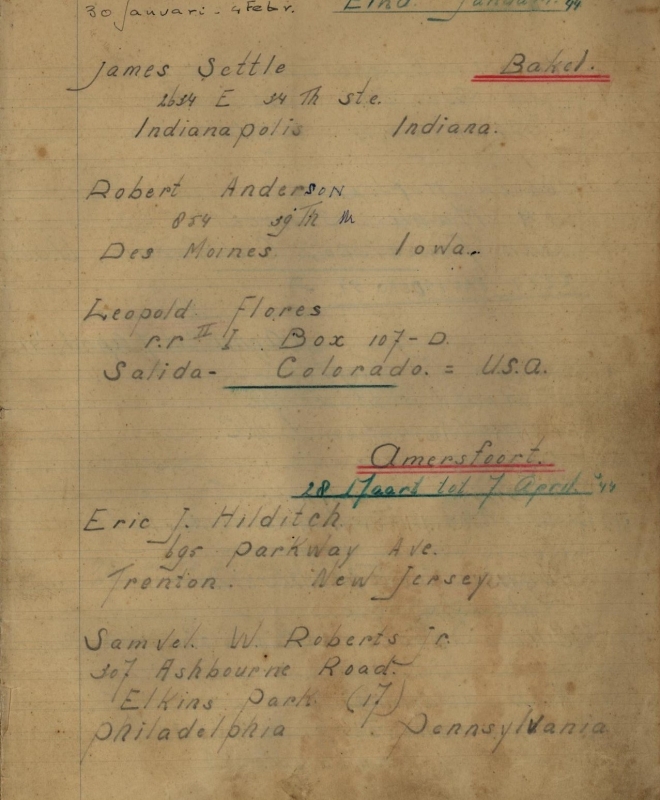 30 Januari - 4 Febr. Eind Januari. 44
James Settle Bakel.
2634 E 34 Th ste.
Indianapolis Indiana.
Robert Anderson
854 39 Th
Des Moines Iowa.
Leopold Flores
r.r II I Box 107-D.
Salida- Colorado. = U.S.A.
Amersfoort.
28 Maart tot 7 April '44
Eric J. Hilditch
695 Parkway Ave.
Trenton. New Jersey
Samvel. W. Roberts Jr.
307 Ashbourne Road.
Elkins Park (17)
Philadelphia Pennsylvania